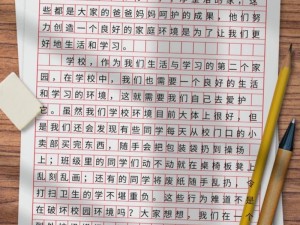 些都是大家的爸爸妈妈呵护的成果，他们努
力创造一个良好的家庭环境是为了让我们更
好地生活和学习。
学校，作为我们生活与学习的第二个家
园，在学校中，我们也需要一个良好的生活
和学习的环境，这就需要我们自己去爱护
它。虽然我们学校环境目前大体上很好，但
是我们还会发现有些同学每天从校门口的小
卖部买完东西，随手会把包装袋扔到操场
上；班级里的同学们动不动就在桌椅板凳上
乱刻乱画；还有的同学将废纸随手乱扔，令
打扫卫生的同学不堪重负。这些行为难道不
在破坏校园环境吗？大家想想，我们在一个